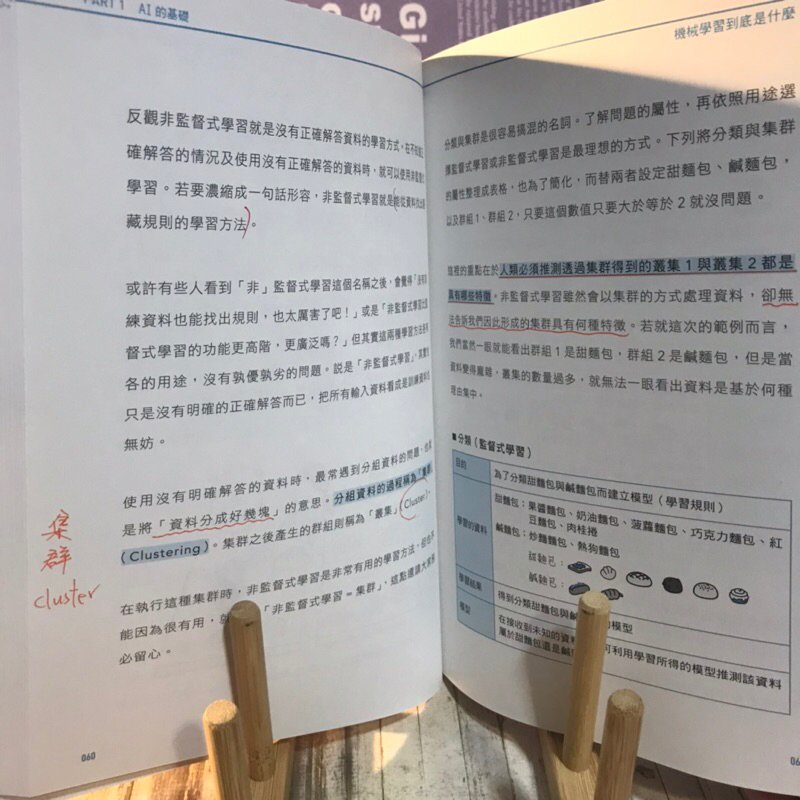 PART 1 AI 的基礎
反觀非監督式學習就是沒有正確解答資料的學習方式。在不知道正
確解答的情況及使用沒有正確解答的資料時，就可以使用非監督式
學習。若要濃縮成一句話形容，非監督式學習就是能從資料找出隱
藏規則的學習方法。
或許有些人看到「非」監督式學習這個名稱之後，會覺得「沒有訓
練資料也能找出規則，也太厲害了吧！」或是「非監督式學習比監
督式學習的功能更高階，更廣泛嗎？」但其實這兩種學習方法各有
各的用途，沒有孰優孰劣的問題。說是「非監督式學習」，其實也
只是沒有明確的正確解答而已，把所有輸入資料看成是訓練資料也
無妨。
使用沒有明確解答的資料時，最常遇到分組資料的問題，也就
是將「資料分成好幾塊」的意思。分組資料的過程稱為「集群」
(Clustering)。集群之後產生的群組則稱為「叢集」(Cluster)。
在執行這種集群時，非監督式學習是非常有用的學習方法，但也不
能因為很有用，就「非監督式學習＝集群」，這點還請大家務
必留心。
集
群
cluster
060
機械學習到底是什麼
分類與集群是很容易搞混的名詞。了解問題的屬性，再依照用途選
擇監督式學習或非監督式學習是最理想的方式。下列將分類與集群
的屬性整理成表格，也為了簡化，而替兩者設定甜麵包、鹹麵包，
以及群組 1、群組 2，只要這個數值只要大於等於 2 就沒問題。
這裡的重點在於人類必須推測透過集群得到的叢集 1 與叢集 2 都是
具有哪些特徵。非監督式學習雖然會以集群的方式處理資料，卻無
法告訴我們因此形成的集群具有何種特徵。若就這次的範例而言，
我們當然一眼就能看出群組 1 是甜麵包，群組 2 是鹹麵包，但是當
資料變得龐雜，叢集的數量過多，就無法一眼看出資料是基於何種
理由集中。
■分類（監督式學習）
目的
為了分類甜麵包與鹹麵包而建立模型（學習規則）
學習的資料
甜麵包：果醬麵包、奶油麵包、菠蘿麵包、巧克力麵包、紅
豆麵包、肉桂捲
鹹麵包：炒麵麵包、熱狗麵包
甜麵包：
鹹麵包：
學習結果
得到分類甜麵包與鹹的模型
模型
在接收到未知的資可利用學習所得的模型推測該資料
屬於甜麵包還是鹹